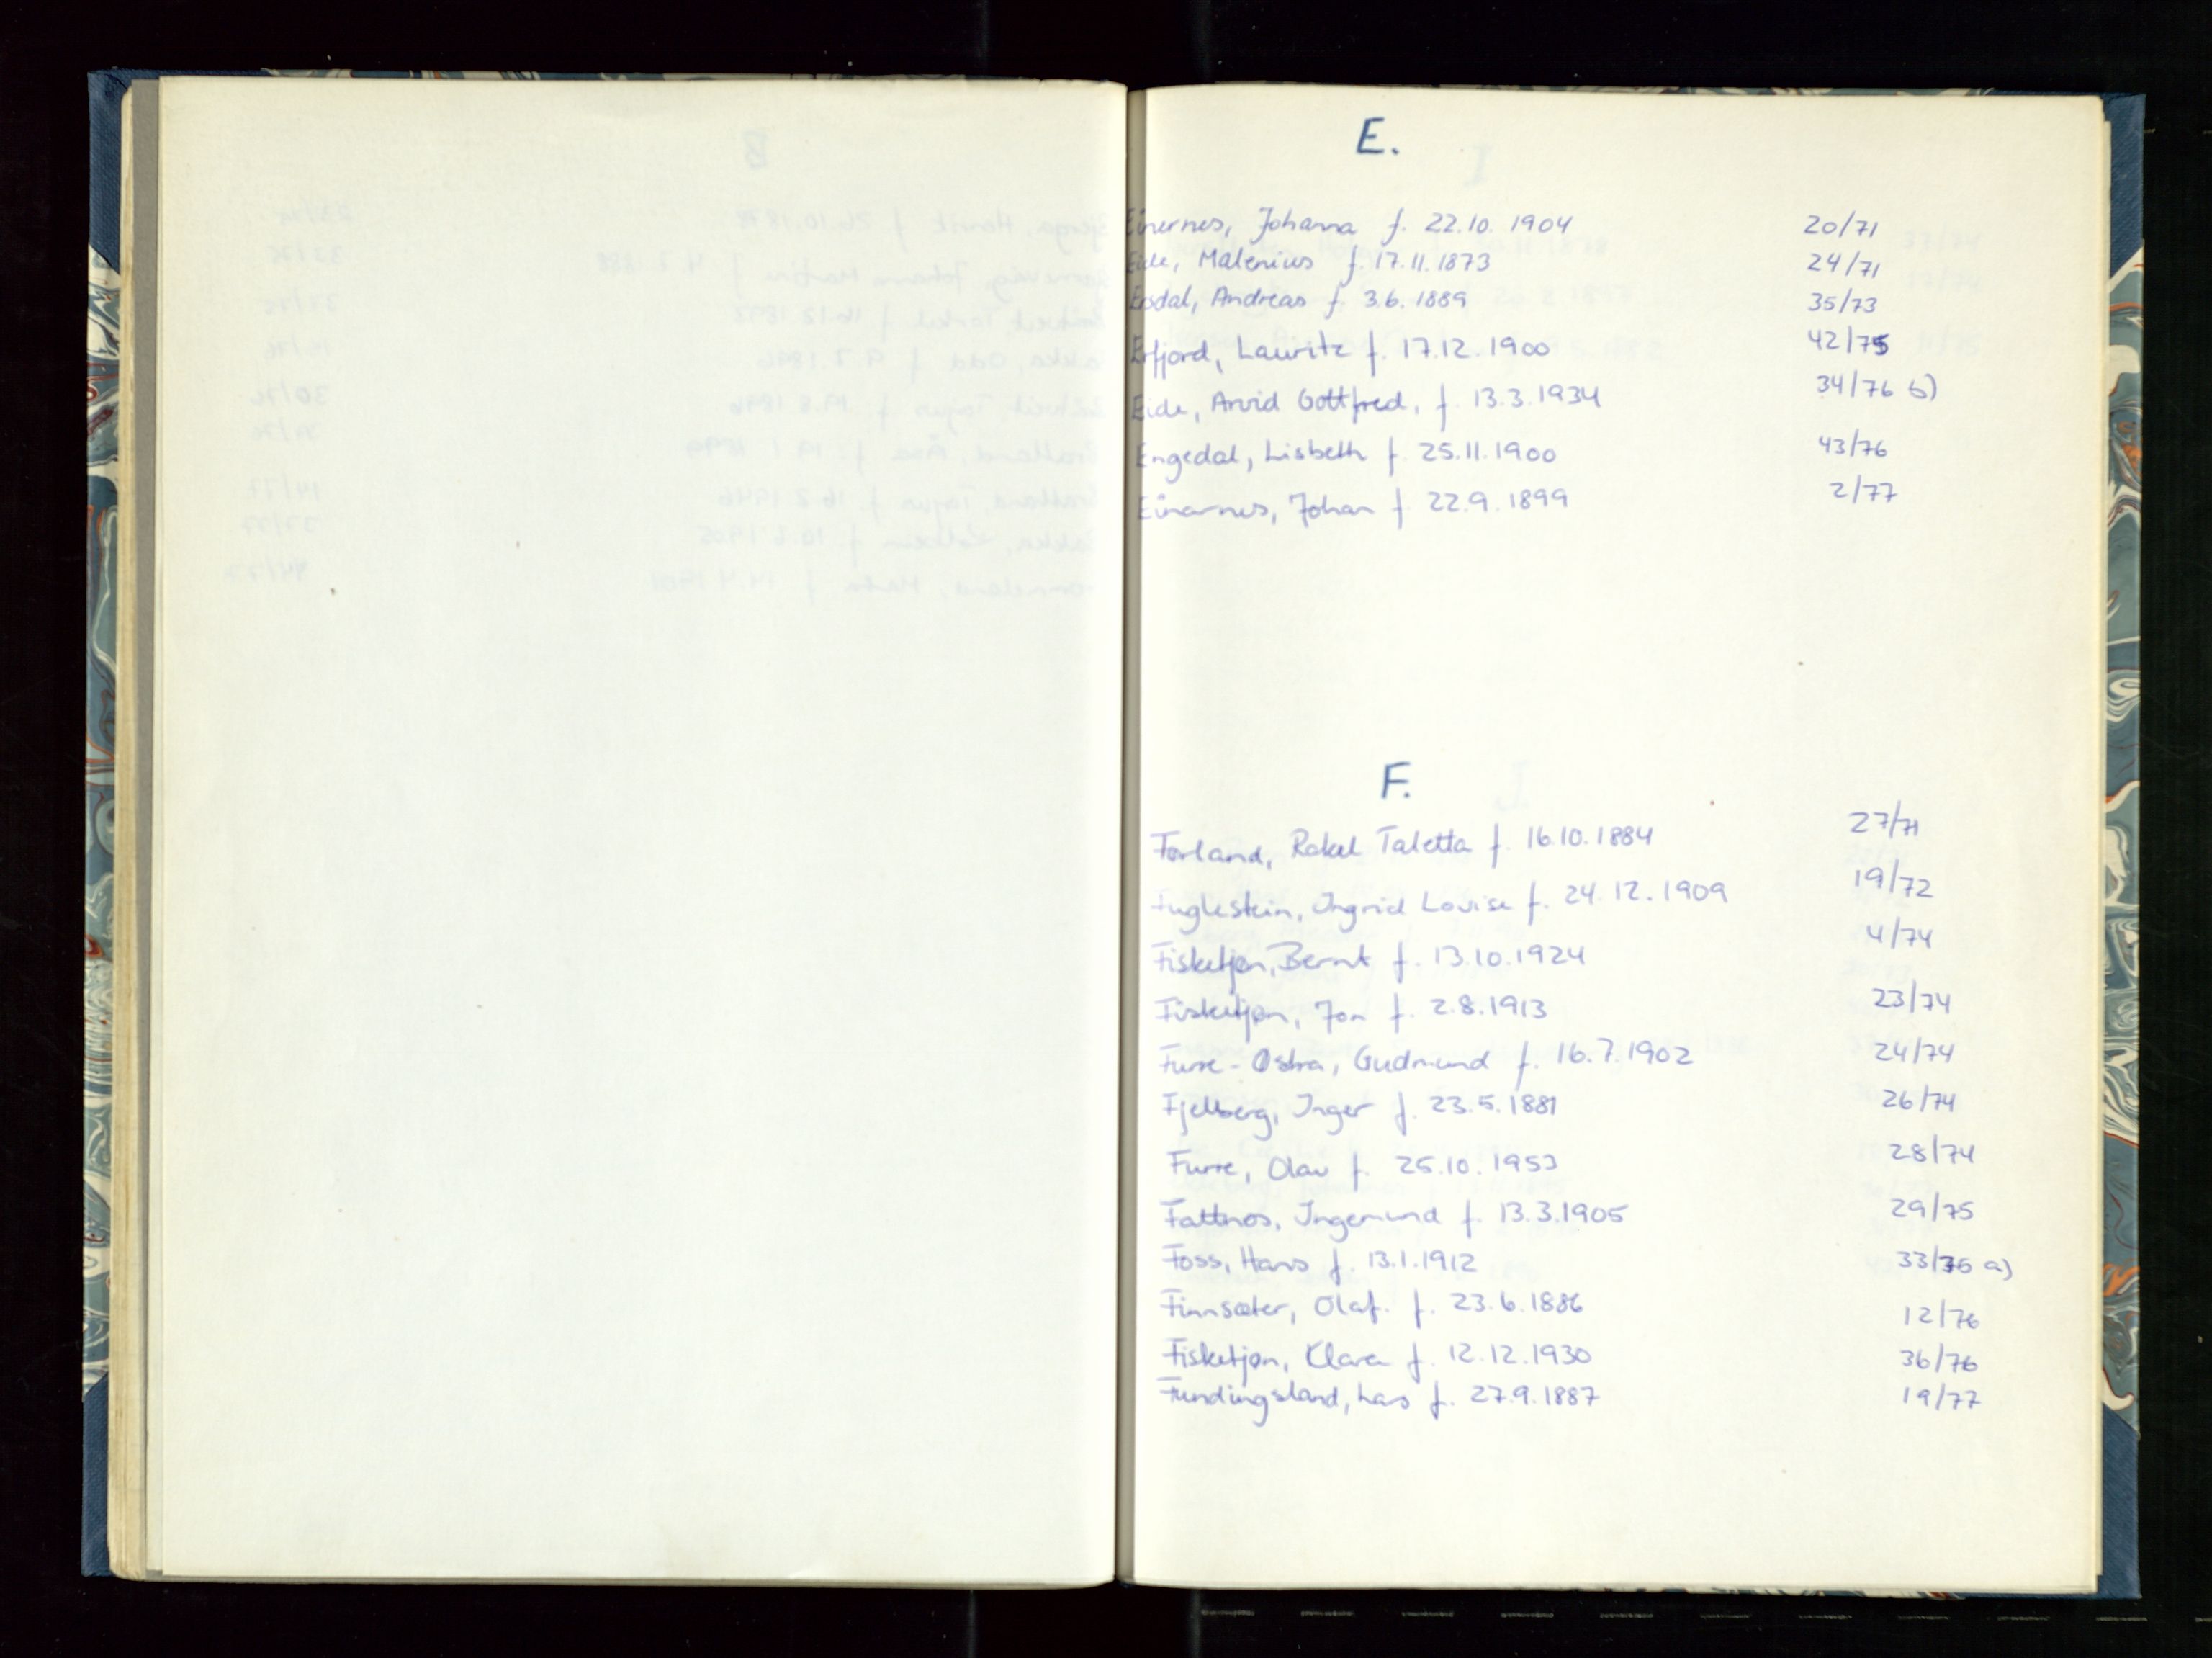 E.
Einernes, Johanna f. 22.10.1904 20/71
Eide, Malenius f. 17.11.1873 24/71
Eodal, Andreas f. 3.6.1889 35/73
Erfjord, Lauritz f. 17.12.1900 42/75
Eide, Arvid Gottfred, f. 13.3.1934 34/76 b)
Engedal, Lisbeth f. 25.11.1900 43/76
Einarnes, Johan f 22.9.1899 2/77
F.
Førland, Rakel Taletta f. 16.10.1884 27/71
Fuglestein, Ingrid Lovise f. 24.12.1909 19/72
Fisketjøn, Bernt f. 13.10.1924 4/74
Fisketjøn, Jon f. 2.8.1913 23/74
Furre-Østra, Gudmund f. 16.7.1902 24/74
Fjelberg, Inger f. 23.5.1881 26/74
Furre, Olav f. 25.10.1953 28/74
Fattnes, Ingemund f. 13.3.1905 29/75
Foss, Hans f. 13.1.1912 33/75 a)
Finnsæter, Olaf. f. 23.6.1886 12/76
Fisketjøn, Klara f. 12.12.1930 36/76
Fundingsland, Lars f. 27.9.1887 19/77